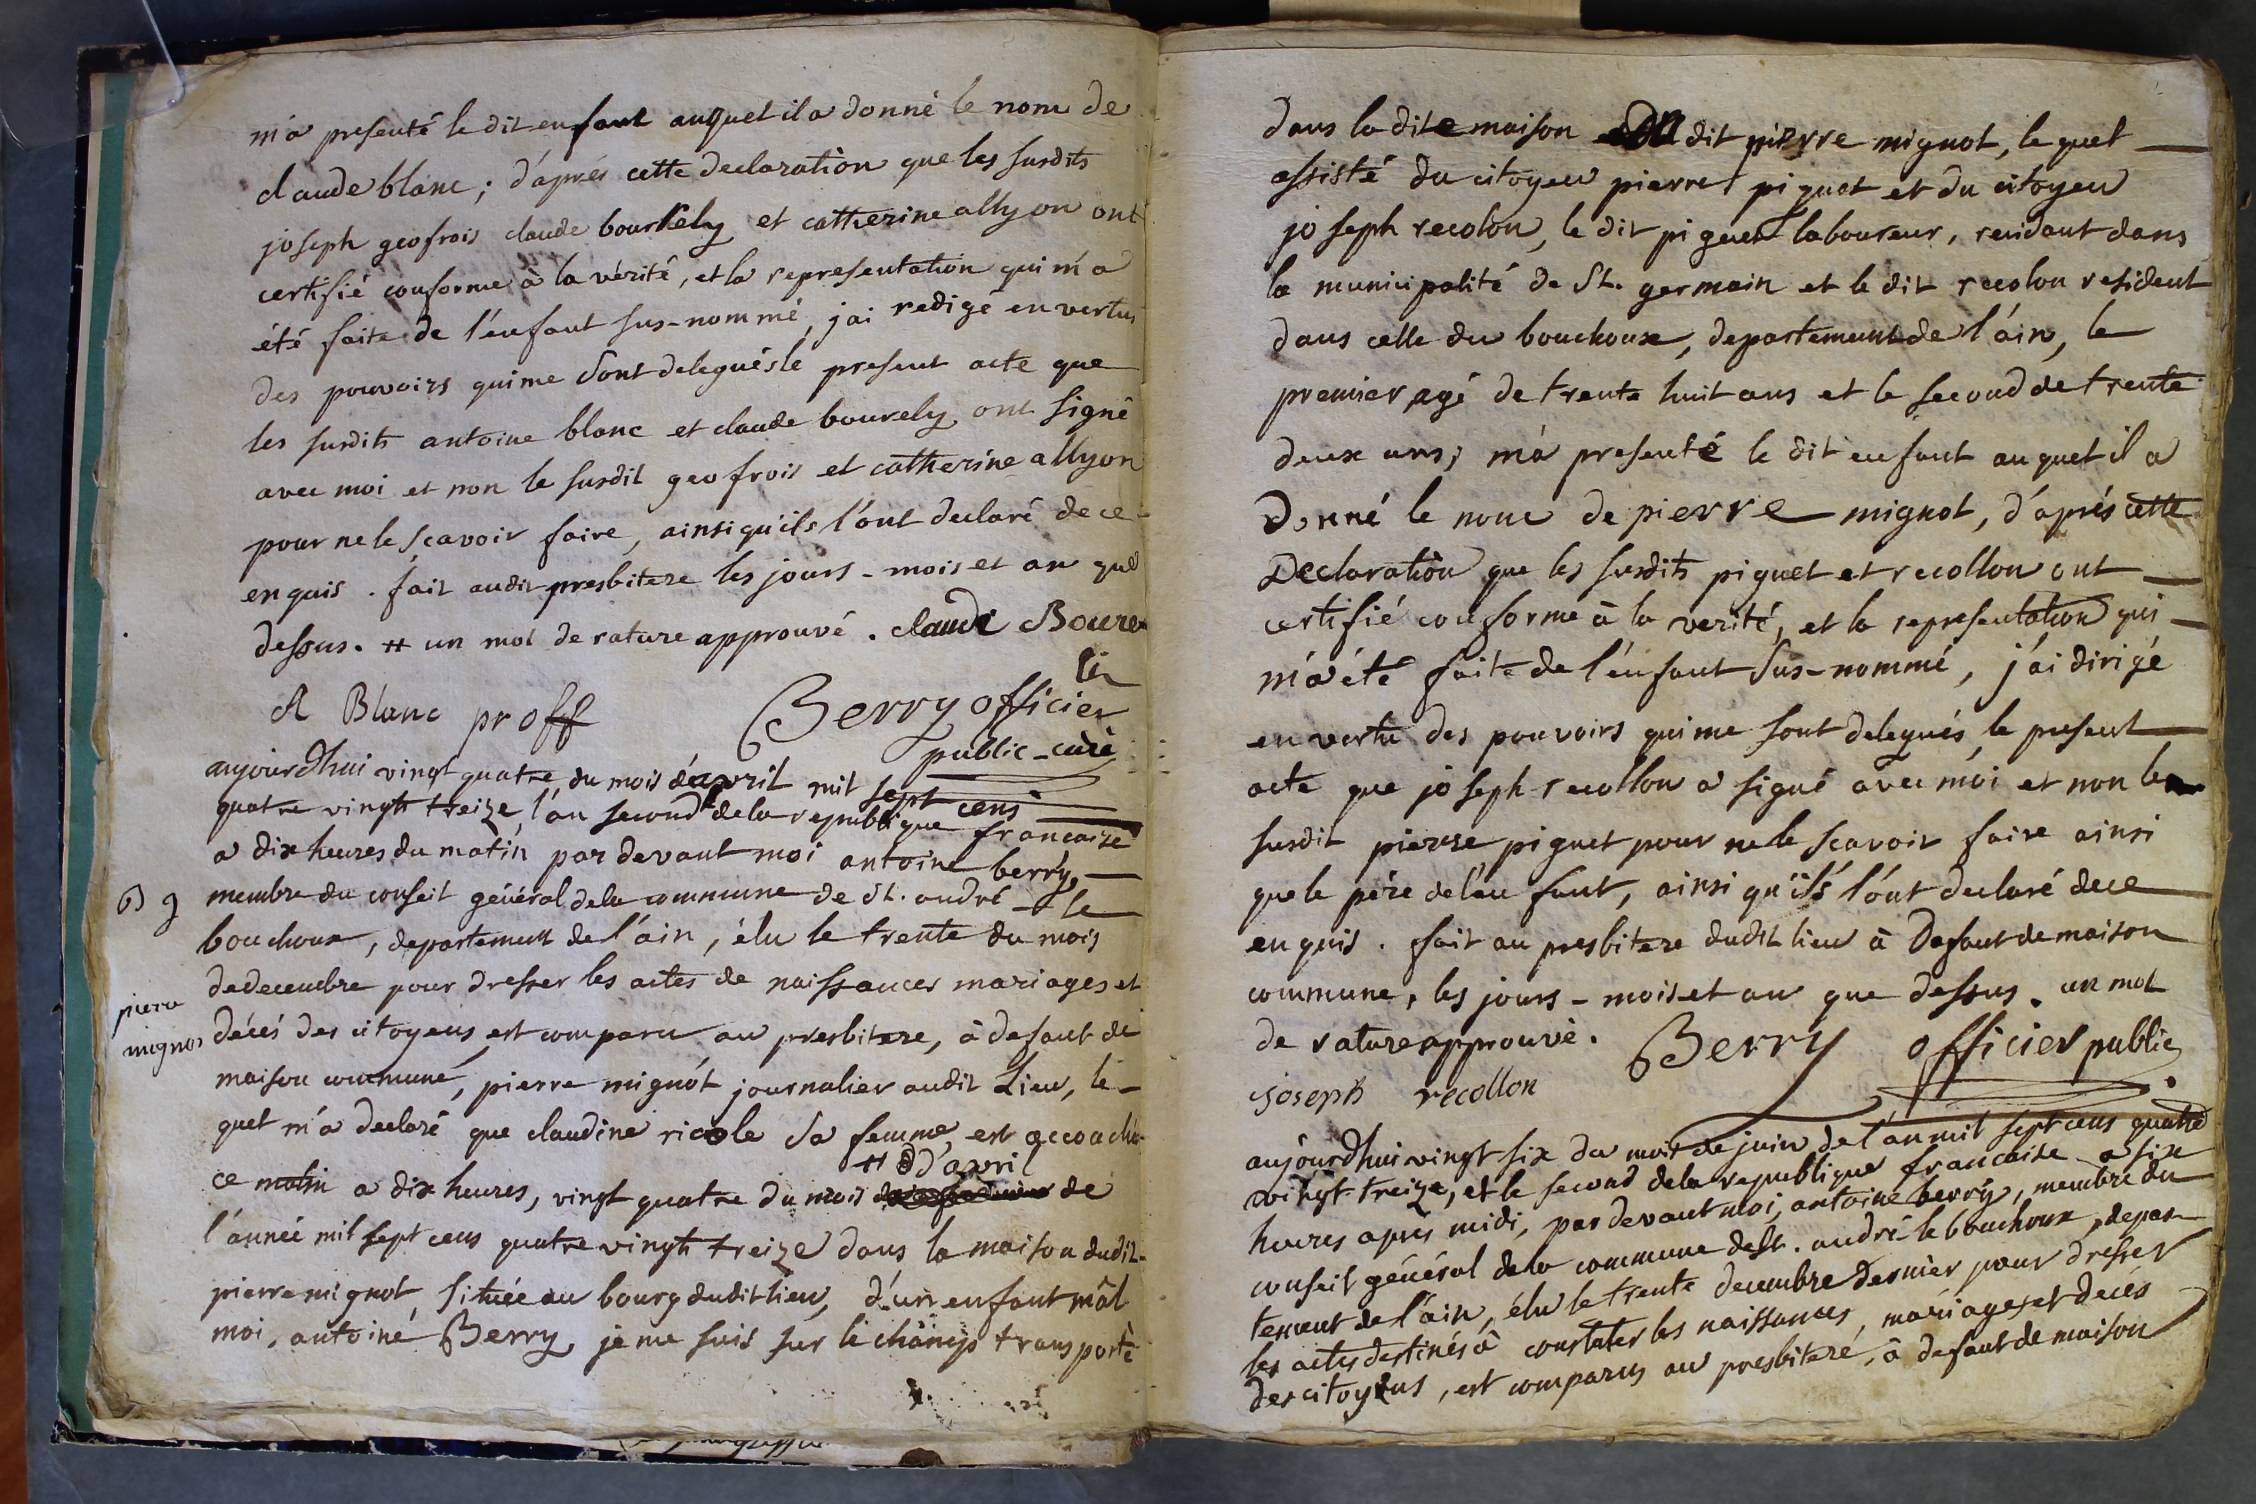 m'a presenté le dit enfant auquel il a donné le nom de
claude blanc ; d'aprés cette declaration que les susdits
joseph geofrois claude bourkely et catherine allyon ont
certifié conforme à la vérité, et la representation qui m'a
été faite de l'enfant sus-nommé, j'ai redigé en vertus
des pouvoirs qui me sont delegués le present acte que
les susdits antoine blanc et claude bourely ont signé
avec moi et non le susdit geofrois et catherine allyon
pour ne le scavoir faire, ainsi qu'ils l'ont declaré de ce
enquis . fait audit presbitere les jours - mois et an que
dessus. # un mot de rature approuvé . claude Boure
lii
A Blanc proff Berry officier
public - curé
aujourdhui vingt quatre du mois d'avril mil sept cens
quatre vingts treize, l'an second de la republique francaise
a dix heures du matin par devant moi antoine berry,
membre du conseil général de la commune de St. andré - le
bouchoux, departement de l'ain, élu le trente du mois
de decembre pour dresser les actes de naissances mariages et
pierre
mignot
décés des citoyens, est comparu au presbitere, à defaut de
maison commune, pierre mignot journalier audit Lieu, le -
quel m'a declaré que claudine ricole sa femme est accouché
# d'avril
ce matin a dix heures, vingt quatre du mois de
l'année mil sept cens quatre vingts treize dans la maison dudit
pierre mignot, située au bourg dudit lieu, d'un enfant mâl
moi, antoine Berry je me suis sur le champs transporté
dans la dite maison du dit pierre mignot, lequel
assisté du citoyen pierre piguet et du citoyen
joseph recolon, le dit piguet laboureur, residant dans
la municipalité de St. germain et le dit recolon resident
dans celle du bouchoux, departement de l'ain, le
premier agé de trente huit ans et le second de trente
deux ans, m'a presenté le dit enfant auquel il a
donné le nom de pierre mignot, d'aprés cette
declaration que les susdits piguet et recollon ont
certifié conforme à la verité, et la representation qui
m'a été faite de l'enfant sus-nommé, j'ai dirigé
en vertu des pouvoirs qui me sont delegués, le present
acte que joseph recollon a signé avec moi et non le
susdit pierre piguet pour ne le scavoir faire ainsi
que le père de l'enfant, ainsi qu'ils l'ont declaré de ce
enquis . fait au presbitere dudit lieu à defaut de maison
commune, les jours - mois et an que dessus . un mot
de rature approuvé . Berry officier public
joseph recollon
aujourdhui vingt six du mois de juin de l'an mil sept cens quatre
vingt-treize, et le second de la republique francaise a six
heures apres midi, par devant moi, antoine berry, membre du
conseil général de la commune de St. andré-le bouchoux, depar-
tement de l'ain, élu le trente decembre dernier pour dresser
les actes destinés à constater les naissances, mariages et decés
des citoyens, est comparus au presbiteré, à defaut de maison